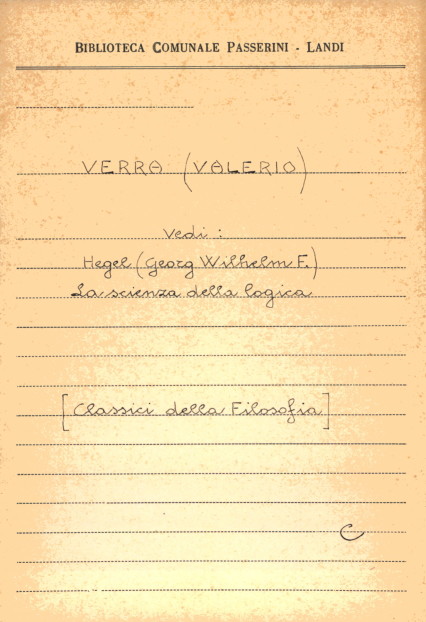 BIBLIOTECA COMUNALE PASSERINI - LANDI
VERRA (VALERIO)
Vedi :
Hegel (Georg Wilhelm F.)
La scienza della logica
[Classici della Filosofia]
C